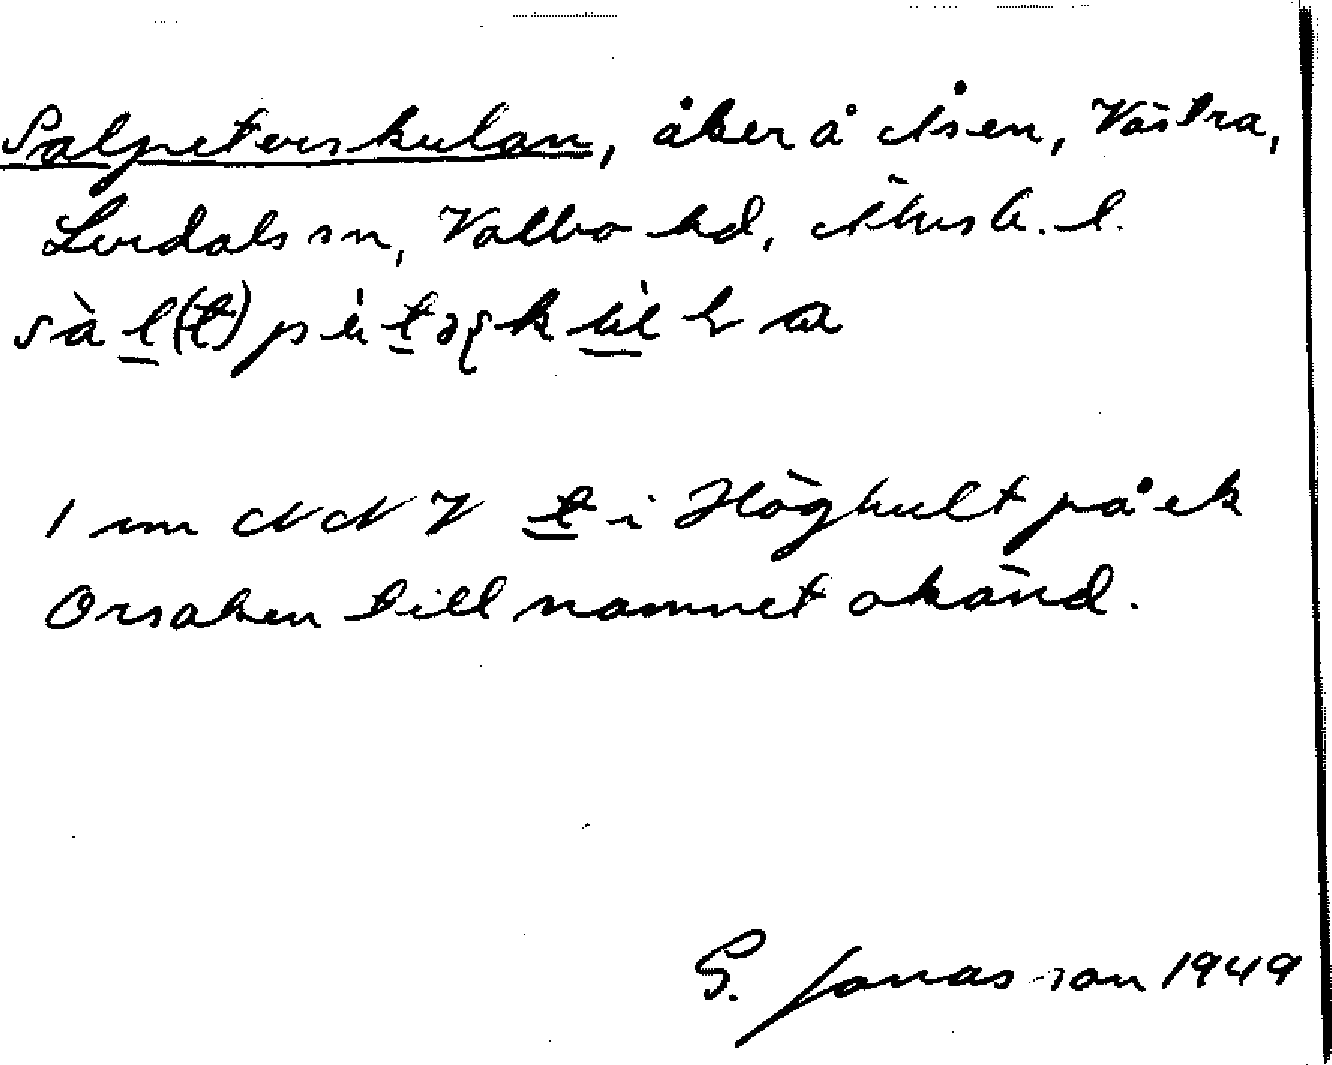 Salpeterskulan, åker å Åsen, Västra,
Lerdals sn, Valbo hd, Älvsb. l.
1 m NNV t i Höghult på ek
Orsaken till namnet okänd.
G. Jonasson 1949